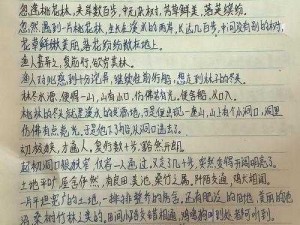 忽逢桃花林,夹岸数百步,中无杂树,芳草鲜美,落英缤纷
忽然遇到一片桃花林,生长在溪流的两岸,长达几百步,中间没有别的树,
花草鲜嫩美丽,落花纷纷散在地上。
渔人甚异之,复前行,欲穷其林。
渔人对此感到十分诧异,继续往前行船,想走到林子的尽头。
林尽水源,便得一山,山有小口,仿佛若有光,便舍船,从口入
桃林的尽头就是溪水的发源地,于是便出现一座山,山上有个小洞口,洞里
仿佛有点亮光。于是他下了船,从洞口进去了。
初极狭,才通人,复行数十步,豁然开朗
起初洞口很狭窄,仅容一人通过,又走了几十步,突然变得开阔明亮了。
土地平旷,屋舍俨然,有良田美池,桑竹之属。阡陌交通,鸡犬相闻。
一片平坦宽广的土地,一排排整齐的房舍,还有肥沃的田地,美丽的池
沼,桑树竹林之类的。田间小路交错相通,鸡鸣狗叫到处都可听到。